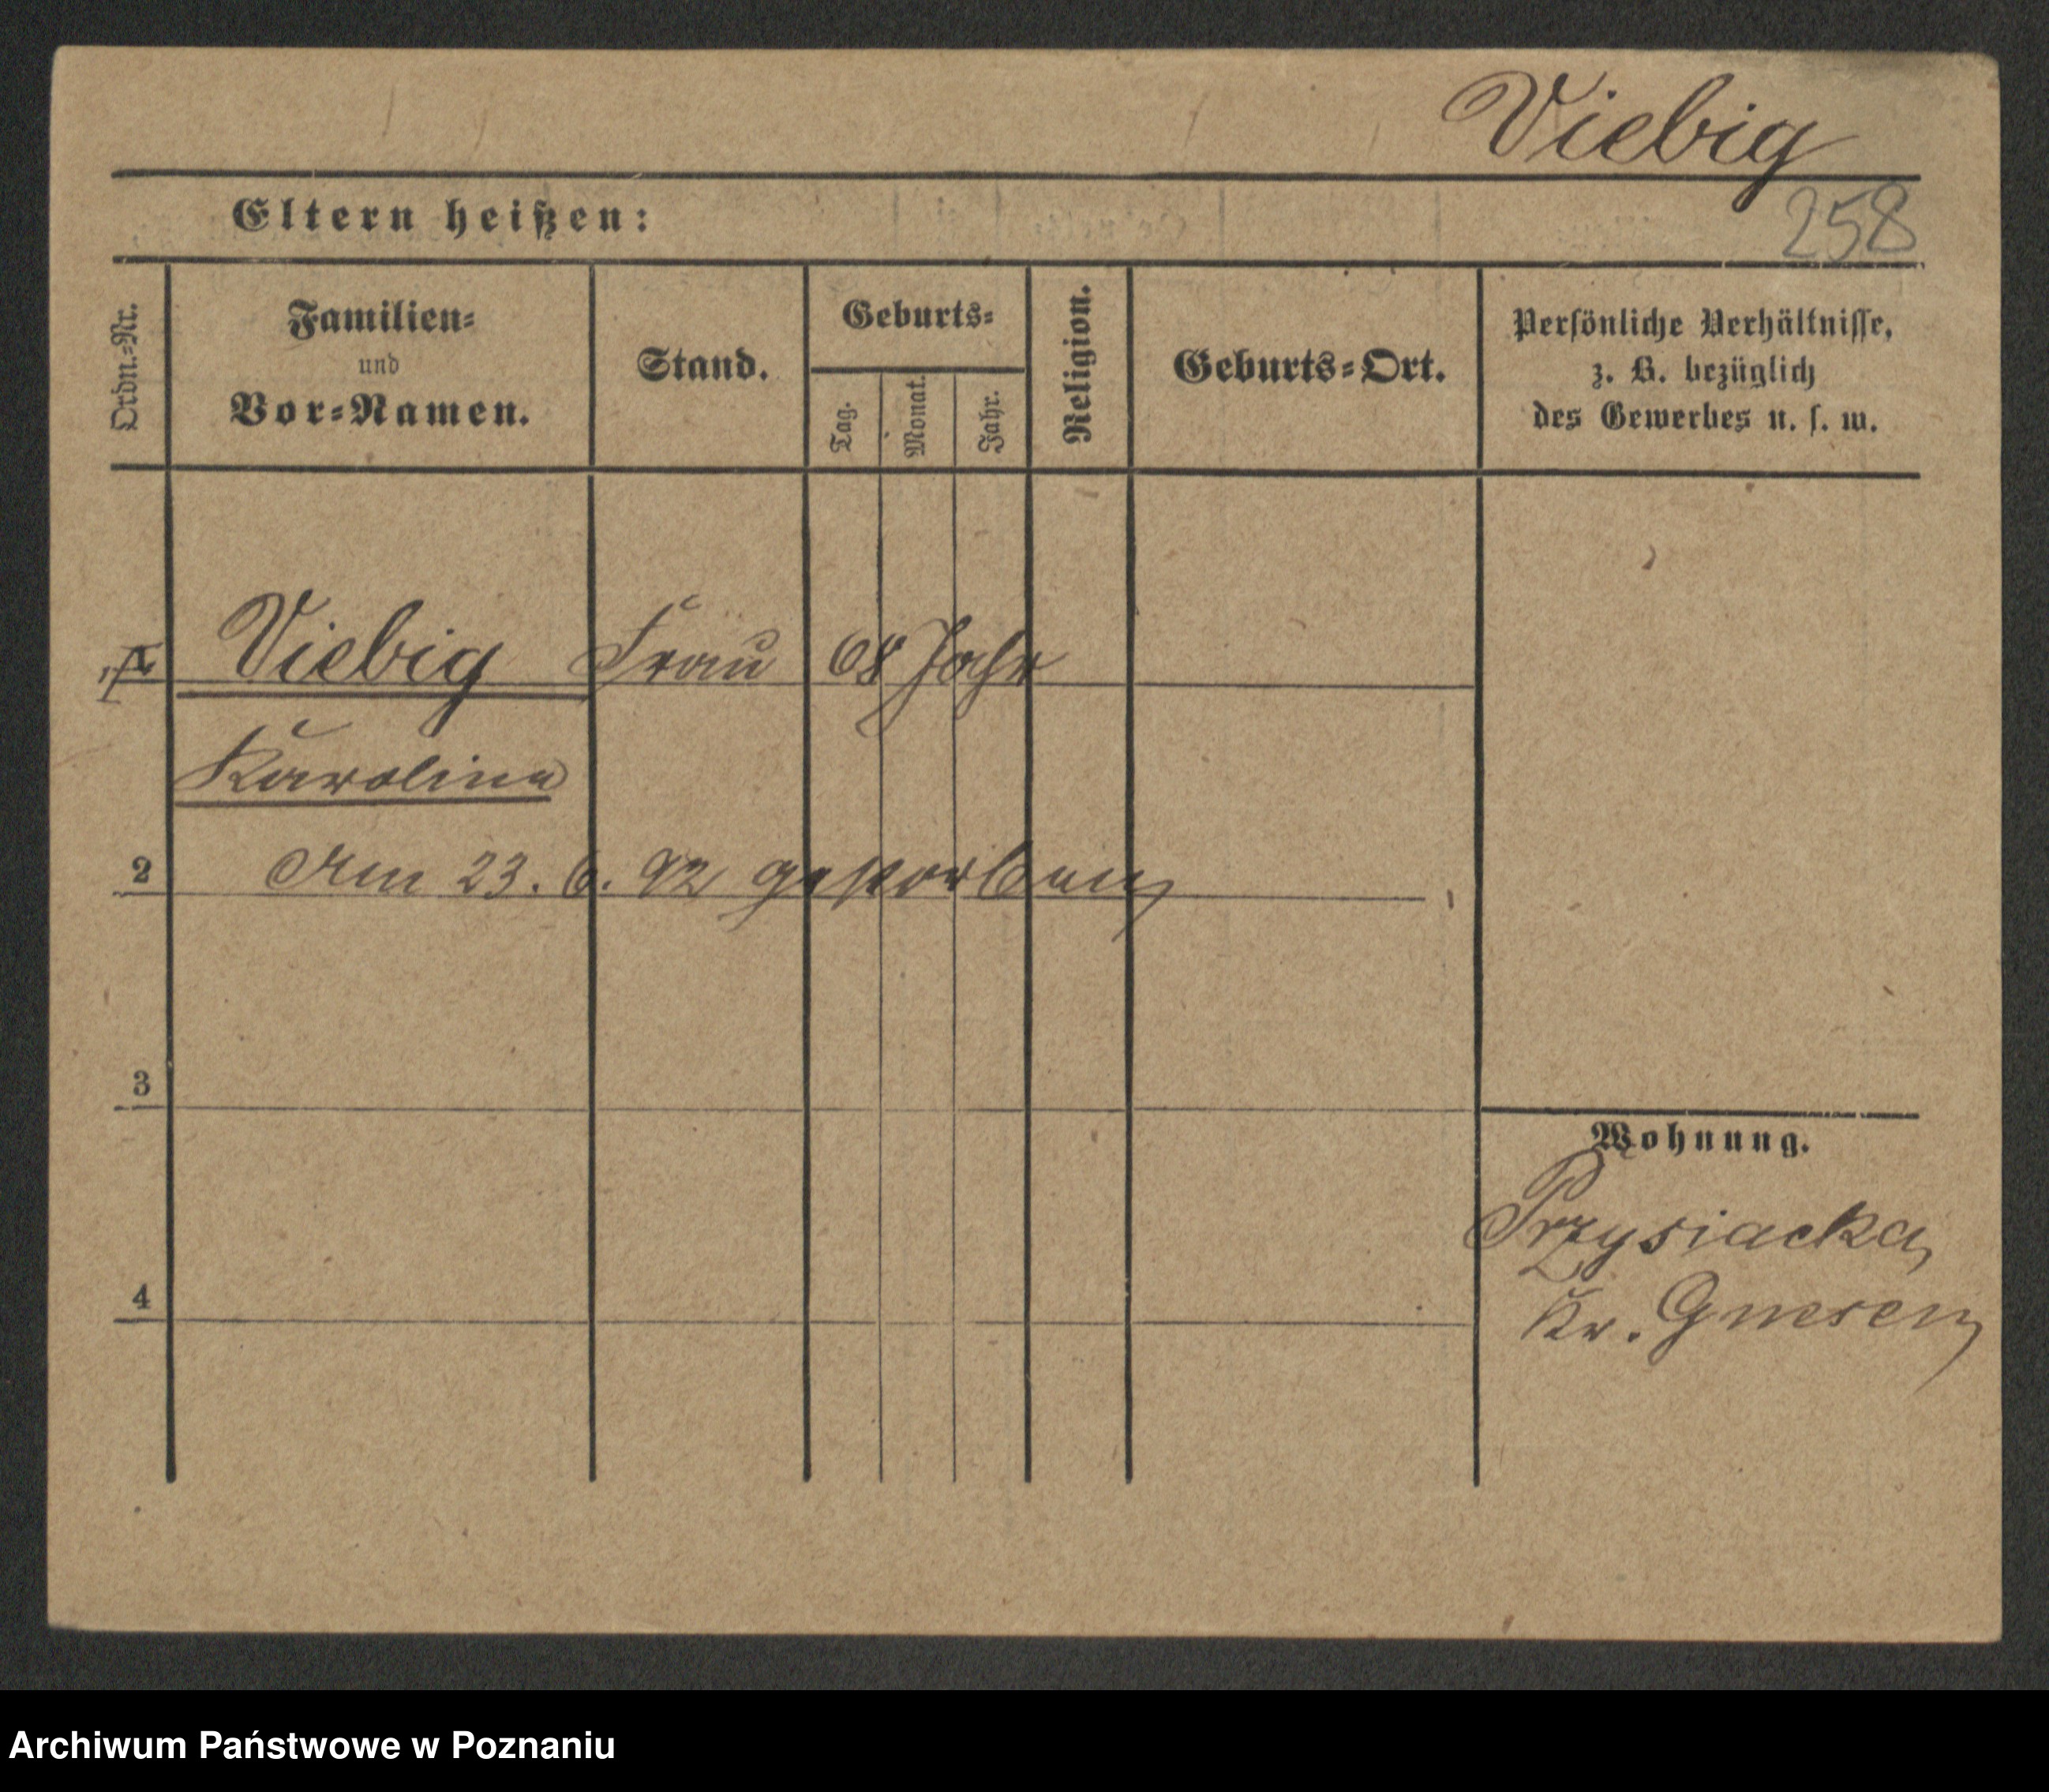 Viebig
258
Eltern heißen:
Ordn.=Nr.
Familien=
und
Vor=Namen.
Stand.
Geburts=
Tag.
Monat.
Jahr.
Religion.
Geburts=Ort.
Persönliche Verhältnisse,
z. B. bezüglich
des Gewerbes u. s. w.
Viebig Frau 68 Jahr
Karoline
2 Am 23. 6. 92 gestorben
3
Wohnung.
Przysiacka,
4
Kr. Gnesen
Archiwum Państwowe w Poznaniu